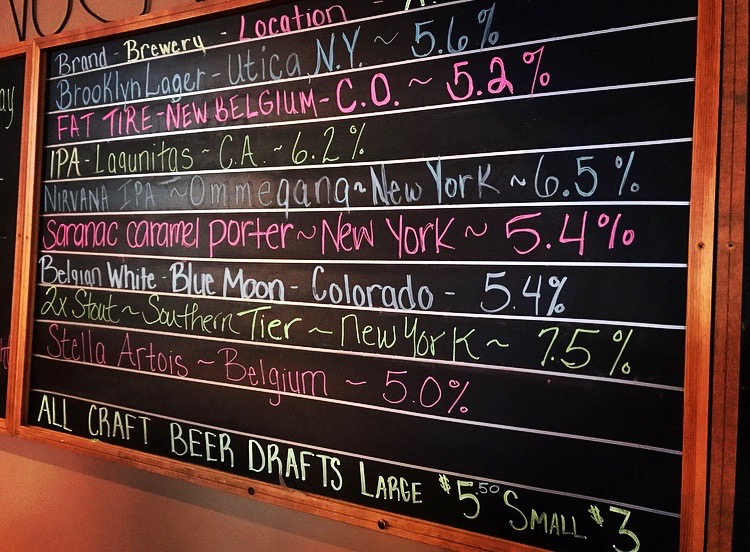 Brand - Brewery - Location -
Brooklyn Lager - Utica, N.Y. ~ 5.6%
FAT TIRE - NEW BELGIUM - C.O. ~ 5.2%
IPA - Lagunitas - C.A. ~ 6.2%
NIRVANA IPA ~ Ommegang ~ New York ~ 6.5%
Saranac caramel porter ~ New York ~ 5.4%
Belgian White - Blue Moon - Colorado - 5.4%
2x Stout ~ Southern Tier ~ New York ~ 7.5%
Stella Artois ~ Belgium ~ 5.0%
ALL CRAFT BEER DRAFTS LARGE $5.50 SMALL $3